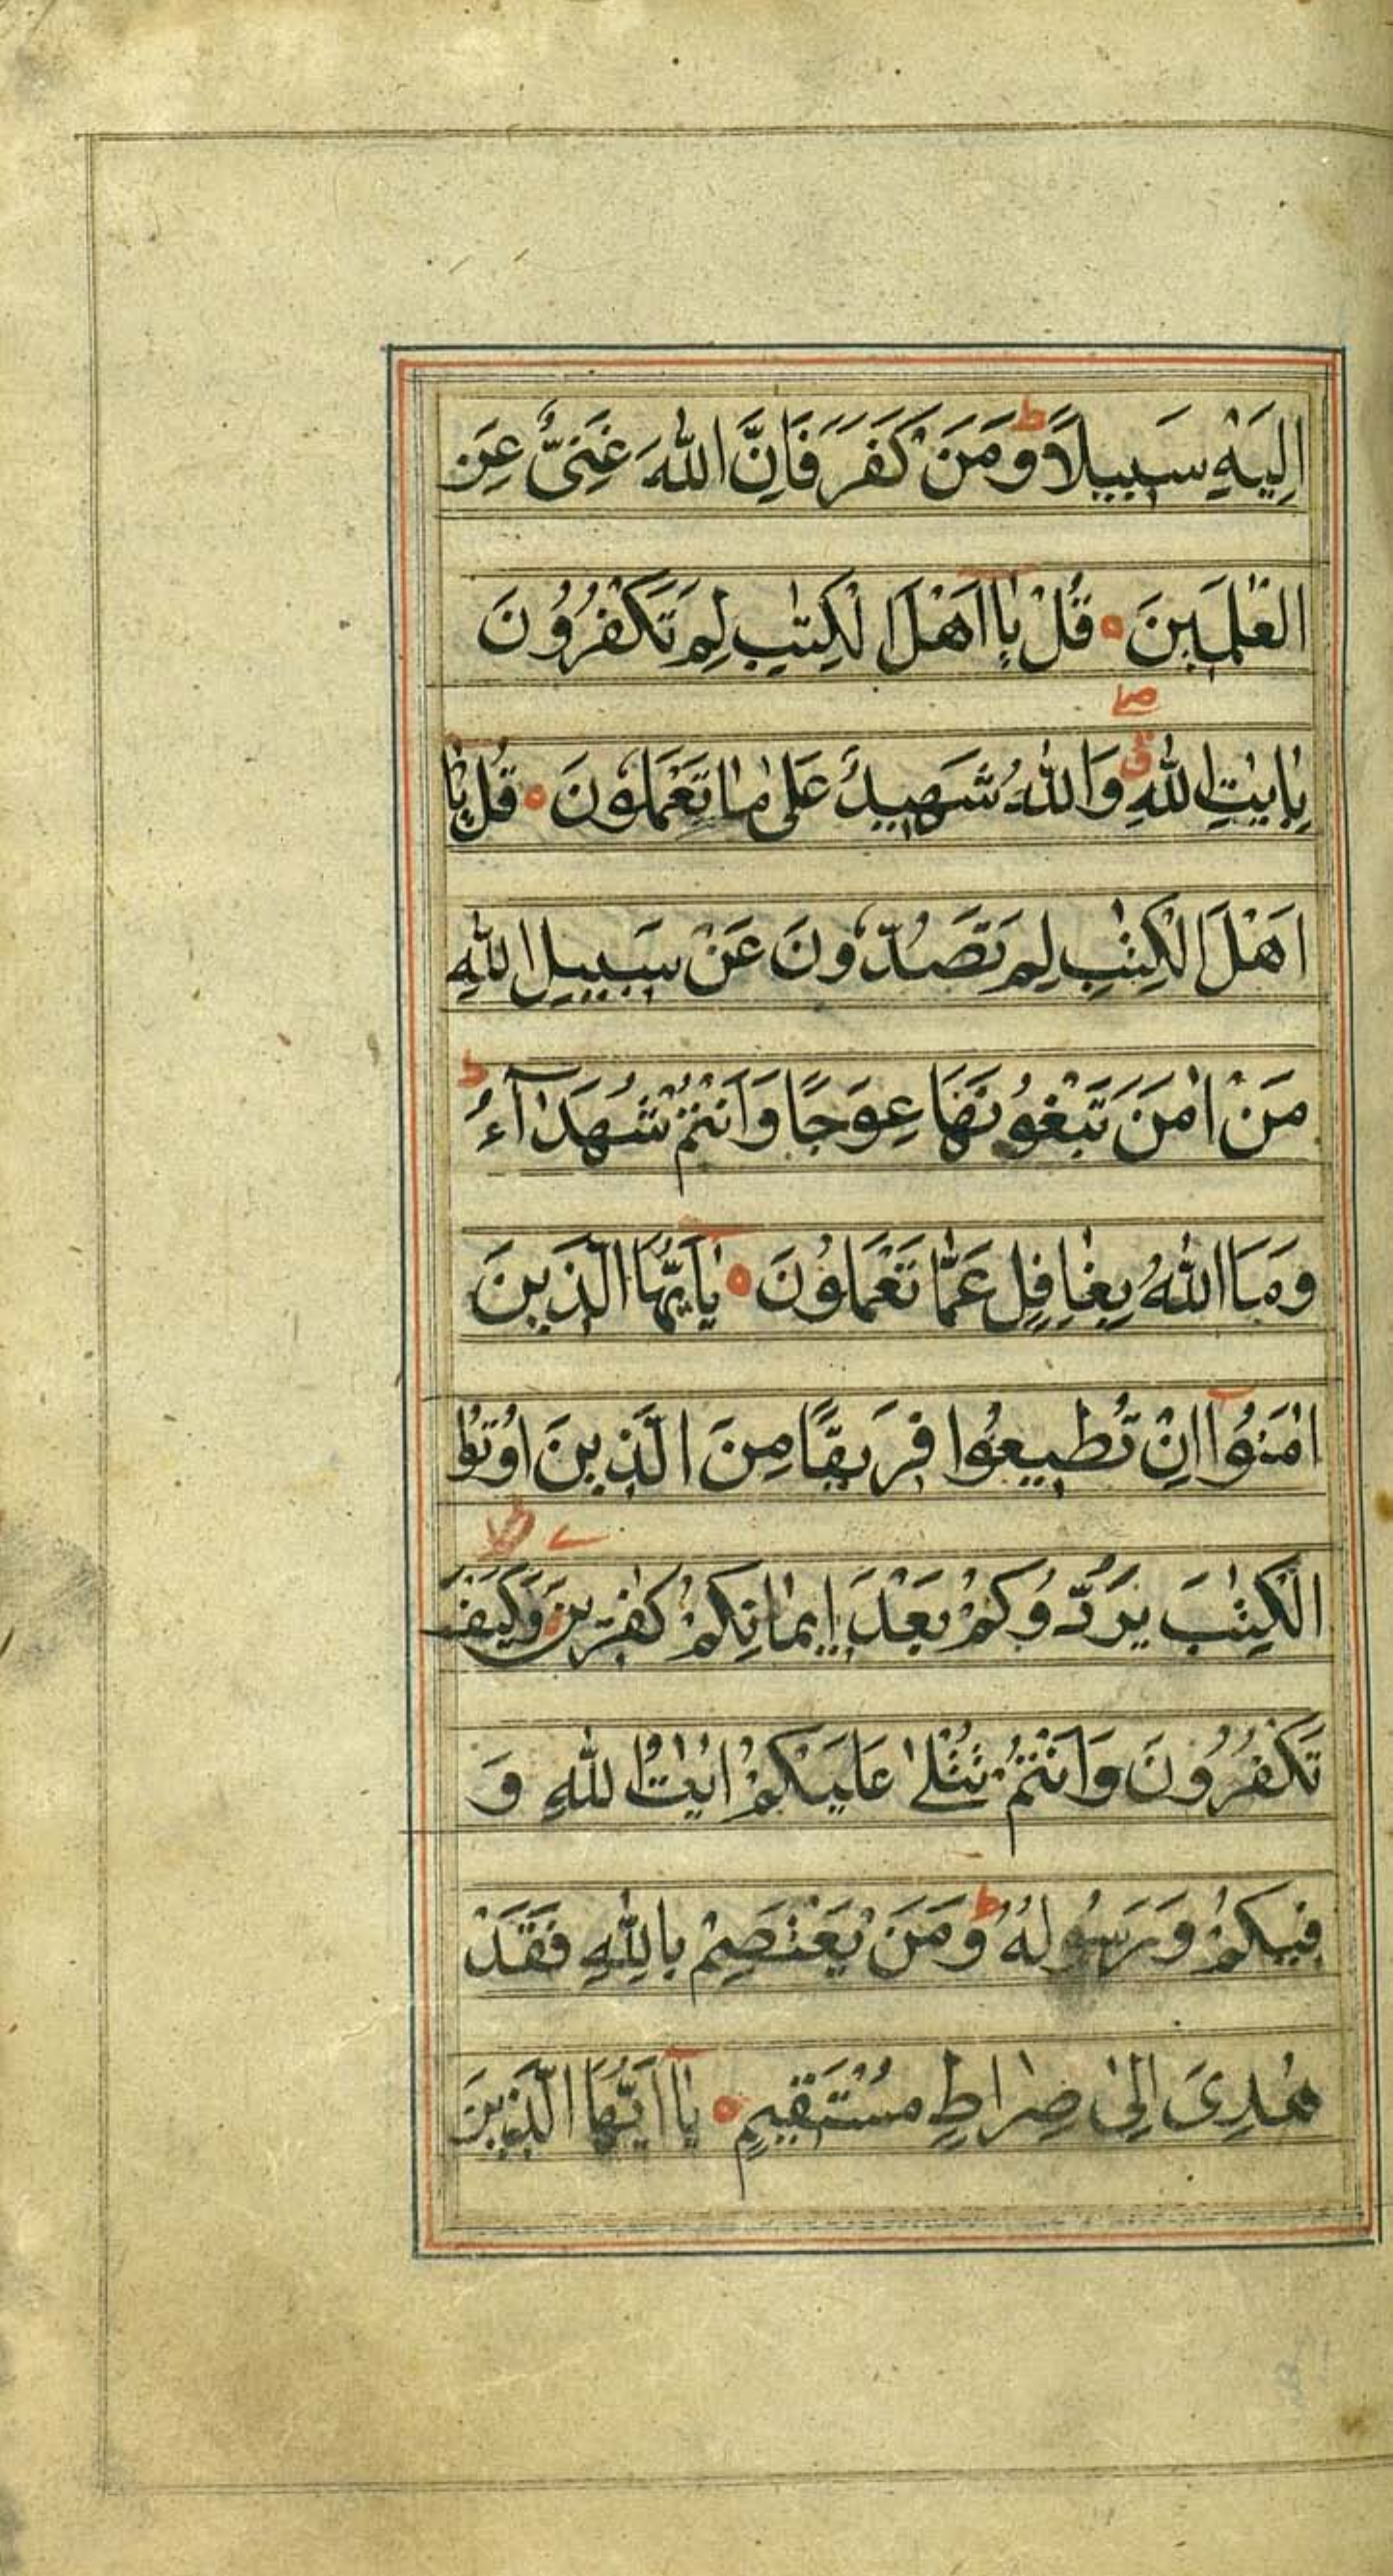 اِلَيْهِ سَبِيلًا ؕ وَمَنْ كَفَرَ فَاِنَّ اللّٰهَ غَنِيٌّ عَنِ
الْعٰلَمِينَ ○ قُلْ يٰا اَهْلَ الْكِتٰبِ لِمَ تَكْفُرُونَ
بِاٰيٰتِ اللّٰهِ وَاللّٰهُ شَهِيدٌ عَلٰى مٰا تَعْمَلُونَ ○ قُلْ يٰا
اَهْلَ الْكِتٰبِ لِمَ تَصُدُّونَ عَنْ سَبِيلِ اللّٰهِ
مَنْ اٰمَنَ تَبْغُونَهَا عِوَجًا وَاَنْتُمْ شُهَدٰآءُ ؕ
وَمَا اللّٰهُ بِغٰافِلٍ عَمَّا تَعْمَلُونَ ○ يٰاَيُّهَا الَّذِينَ
اٰمَنُوْآ اِنْ تُطِيعُوا فَرِيقًا مِنَ الَّذِينَ اُوتُوا
الْكِتٰبَ يَرُدُّوكُمْ بَعْدَ اِيمٰانِكُمْ كٰفِرِينَ ○ وَكَيْفَ
تَكْفُرُونَ وَاَنْتُمْ تُتْلٰا عَلَيْكُمْ اٰيٰتُ اللّٰهِ وَ
فِيكُمْ وَرَسُولُهُ ؕ وَمَنْ يَعْتَصِمْ بِاللّٰهِ فَقَدْ
هُدِىَ اِلٰى صِرٰاطٍ مُسْتَقِيمٍ ○ يٰا اَيُّهَا الَّذِينَ